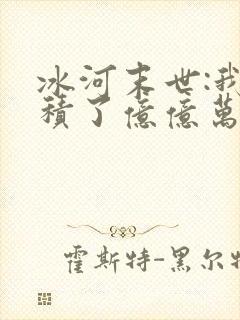 冰河末世:我
積了億億萬
霍斯特-黑尔